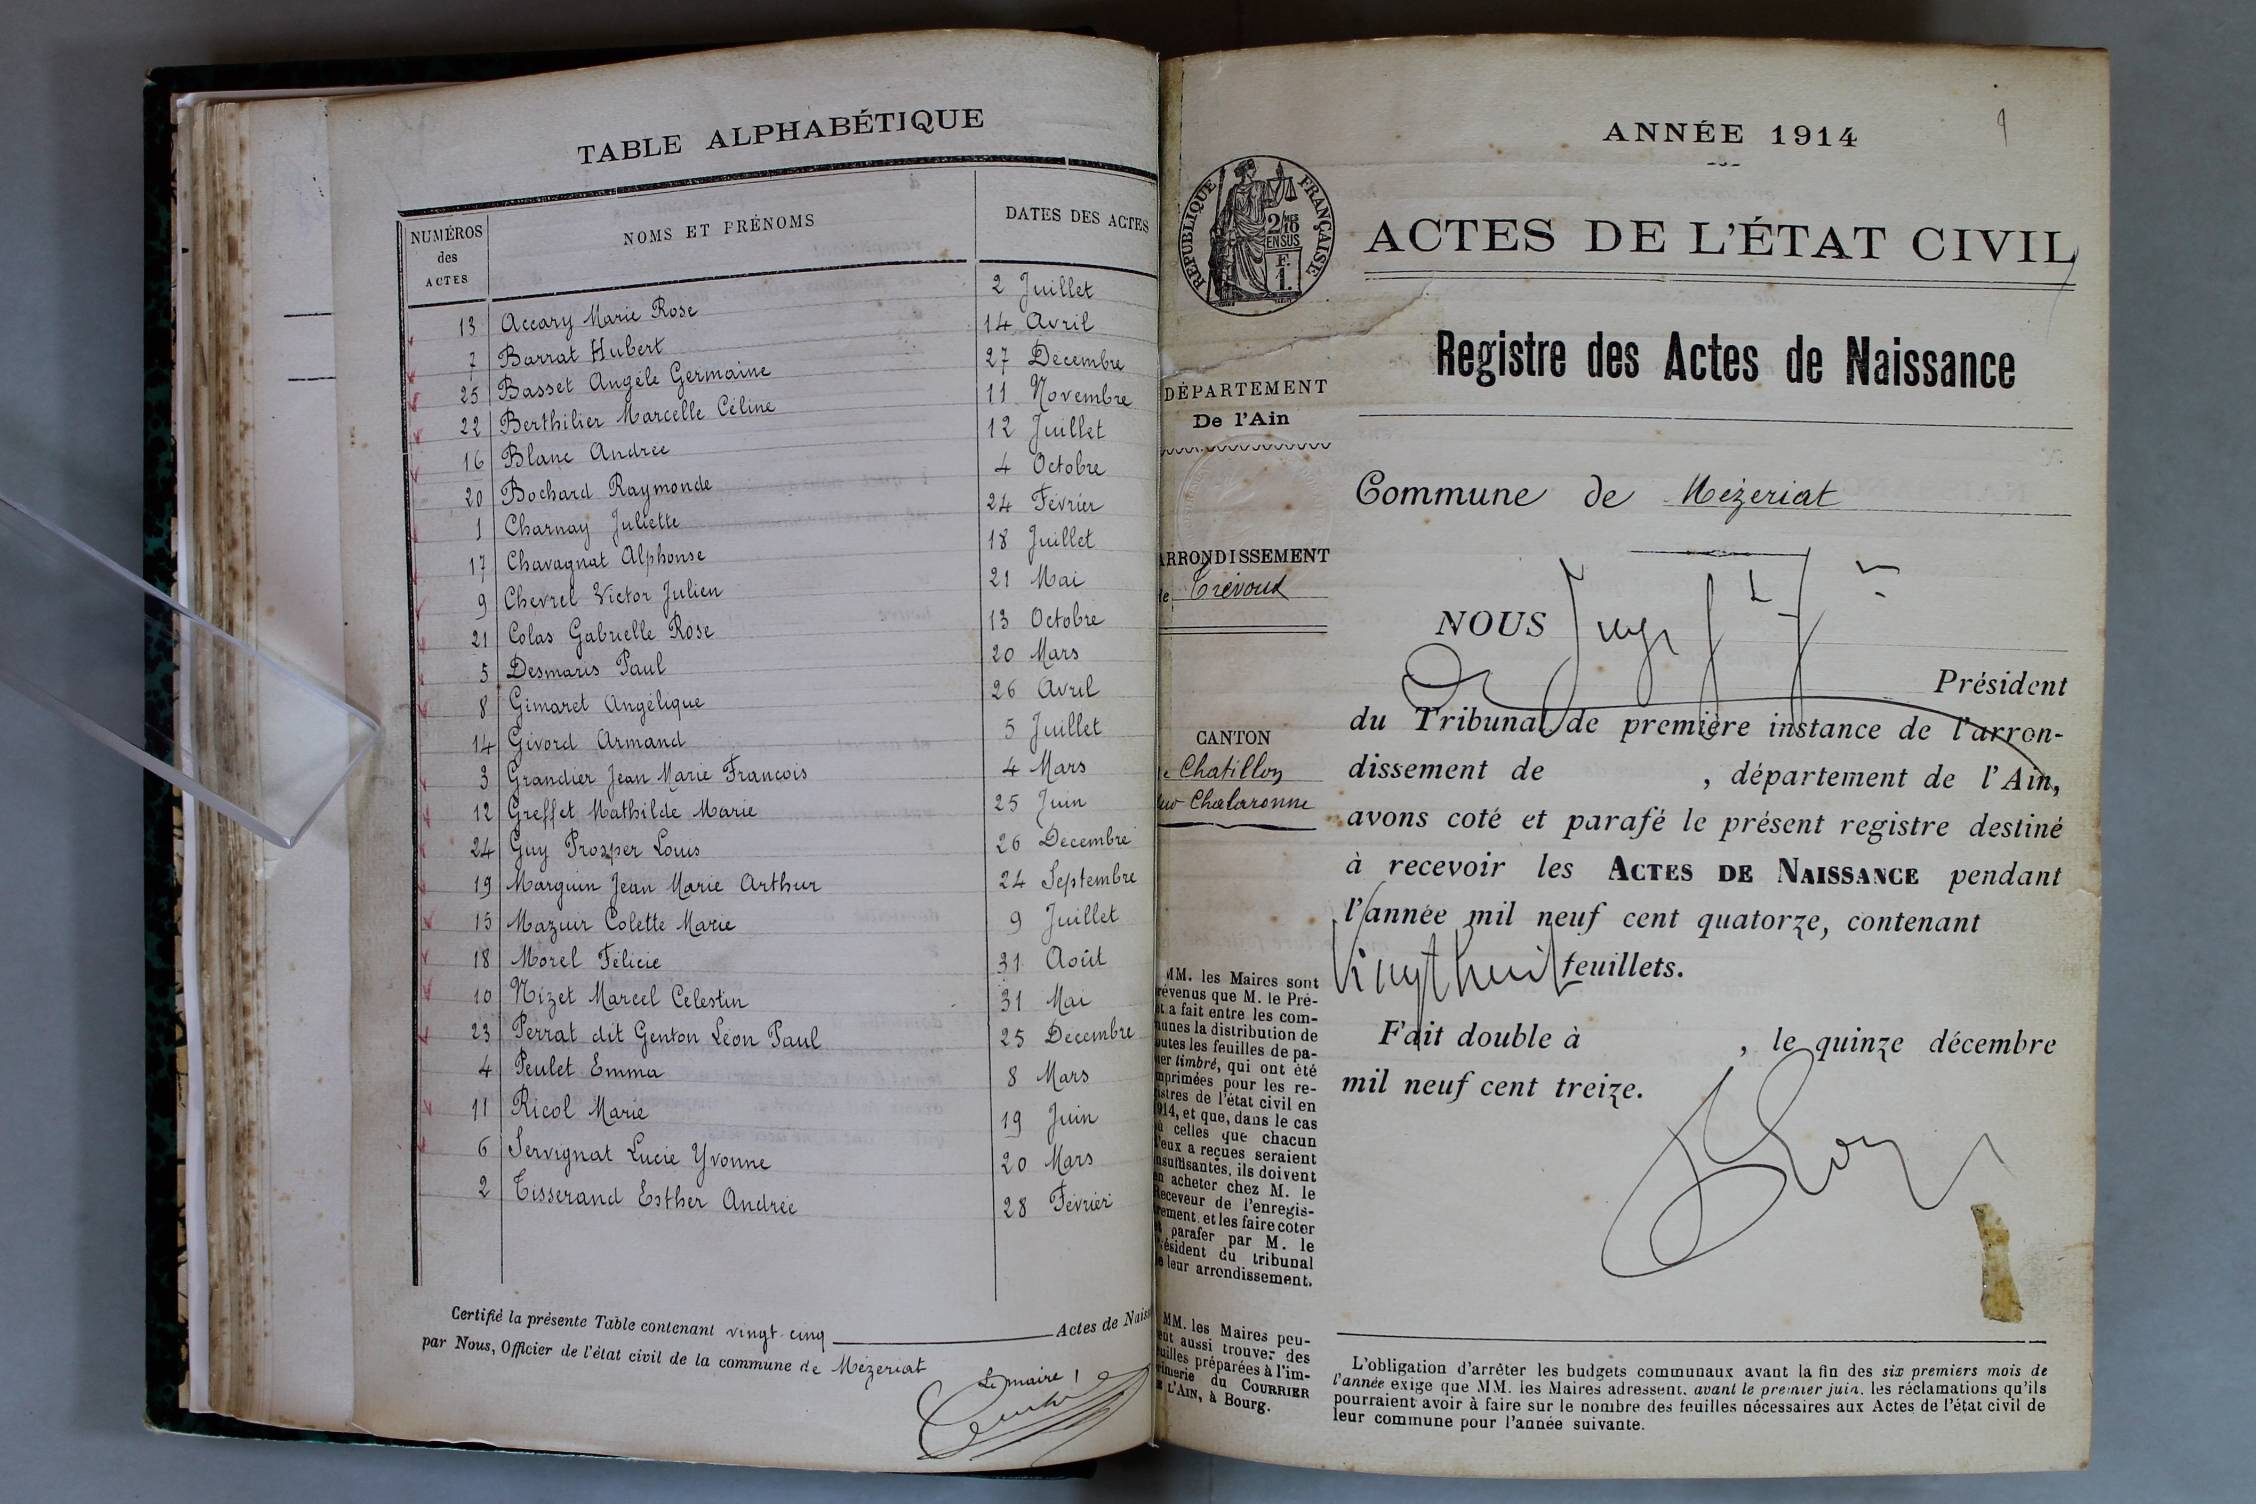 TABLE ALPHABÉTIQUE
NUMÉROS
des
ACTES
NOMS ET PRÉNOMS
DATES DES ACTES
13 Accary Marie Rose 2 Juillet
7 Barrat Hubert 14 Avril
25 Basset Angèle Germaine 27 Decembre
22 Berthilier Marcelle Céline 11 Novembre
16 Blanc Andrée 12 Juillet
20 Bochard Raymonde 4 Octobre
1 Charnay Juliette 24 Février
17 Chavagnat Alphonse 18 Juillet
9 Chevrel Victor Julien 21 Mai
21 Colas Gabrielle Rose 13 Octobre
5 Desmaris Paul 20 Mars
8 Gimaret Angélique 26 Avril
14 Givord Armand 5 Juillet
3 Grandier Jean Marie François 4 Mars
12 Greffet Mathilde Marie 25 Juin
24 Guy Prosper Louis 26 Decembre
19 Marguin Jean Marie Arthur 24 Septembre
15 Mazuir Colette Marie 9 Juillet
18 Morel Félicie 31 Août
10 Nizet Marcel Célestin 31 Mai
23 Perrat dit Genton Léon Paul 25 Decembre
4 Peulet Emma 8 Mars
11 Ricol Marie 19 Juin
6 Servignat Lucie Yvonne 20 Mars
2 Tisserand Esther Andrée 28 Février
Certifié la présente Table contenant vingt-cinq Actes de Naiss
par Nous, Officier de l'état civil de la commune de Mézériat
Le maire
ANNÉE 1914
RÉPUBLIQUE FRANÇAISE
2/10MES
EN SUS
F.
1.
ACTES DE L'ÉTAT CIVIL
Registre des Actes de Naissance
DÉPARTEMENT
De l'Ain
Commune de Mézeriat
ARRONDISSEMENT
de Trévoux
NOUS Juge
Président
du Tribunal de première instance de l'arron-
dissement de , département de l'Ain,
avons coté et parafé le présent registre destiné
à recevoir les ACTES DE NAISSANCE pendant
l'année mil neuf cent quatorze, contenant
vingt huit feuillets.
Fait double à , le quinze décembre
mil neuf cent treize.
CANTON
de Chatillon
sur Chalaronne
MM. les Maires sont
révenus que M. le Pré-
et a fait entre les com-
munes la distribution de
outes les feuilles de pa-
ier timbré, qui ont été
mprimées pour les re-
istres de l'état civil en
914, et que, dans le cas
ù celles que chacun
'eux a reçues seraient
nsuffisantes, ils doivent
n acheter chez M. le
Receveur de l'enregis-
rement et les faire coter
t parafer par M. le
résident du tribunal
e leur arrondissement.
MM. les Maires peu-
ent aussi trouver des
euilles préparées à l'im-
rimerie du COURRIER
E L'AIN, à Bourg.
L'obligation d'arrêter les budgets communaux avant la fin des six premiers mois de
l'année exige que MM. les Maires adressent, avant le premier juin, les réclamations qu'ils
pourraient avoir à faire sur le nombre des feuilles nécessaires aux Actes de l'état civil de
leur commune pour l'année suivante.